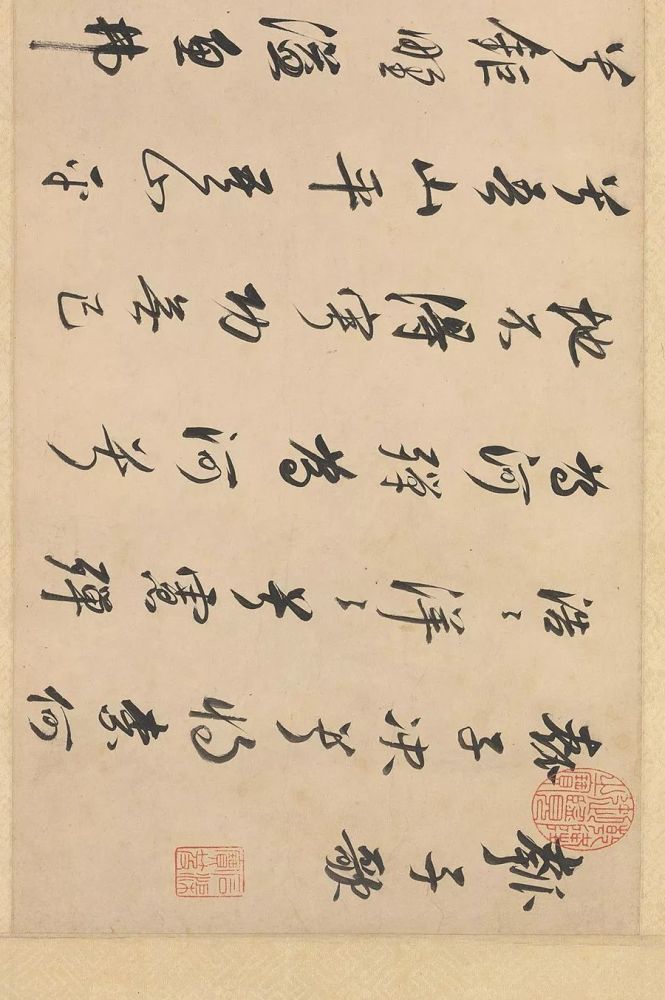 瓠子歌
瓠子決兮將柰何
浩〻洋〻兮慮殫
為河殫為河兮
地不得寧功無已
兮吾山平吾山平
兮鉅野溢魚弗
石渠寶笈